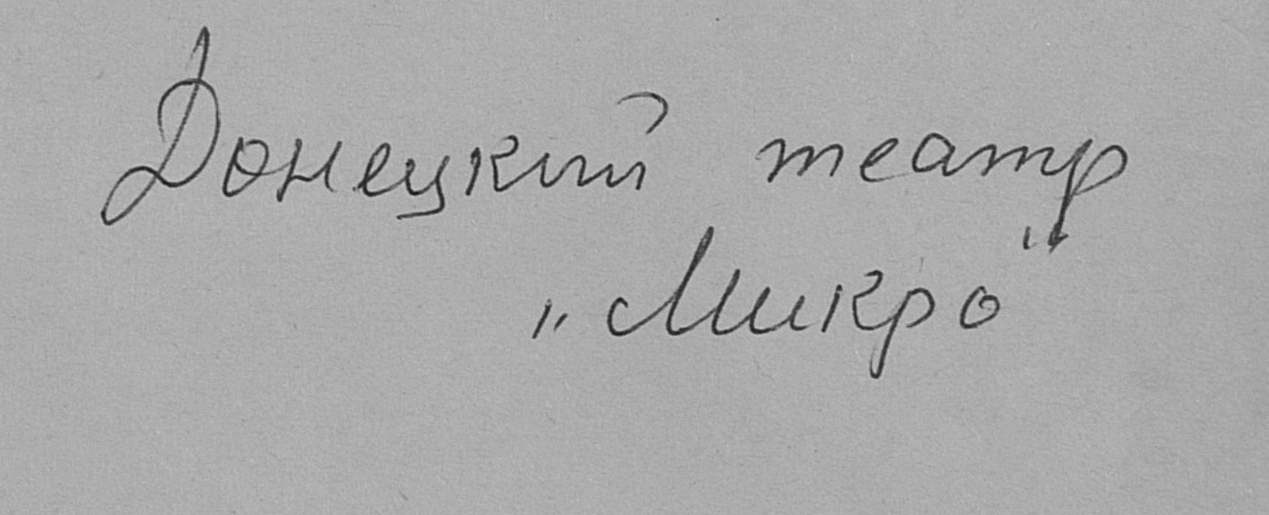 Донецкий театр
„Микро"